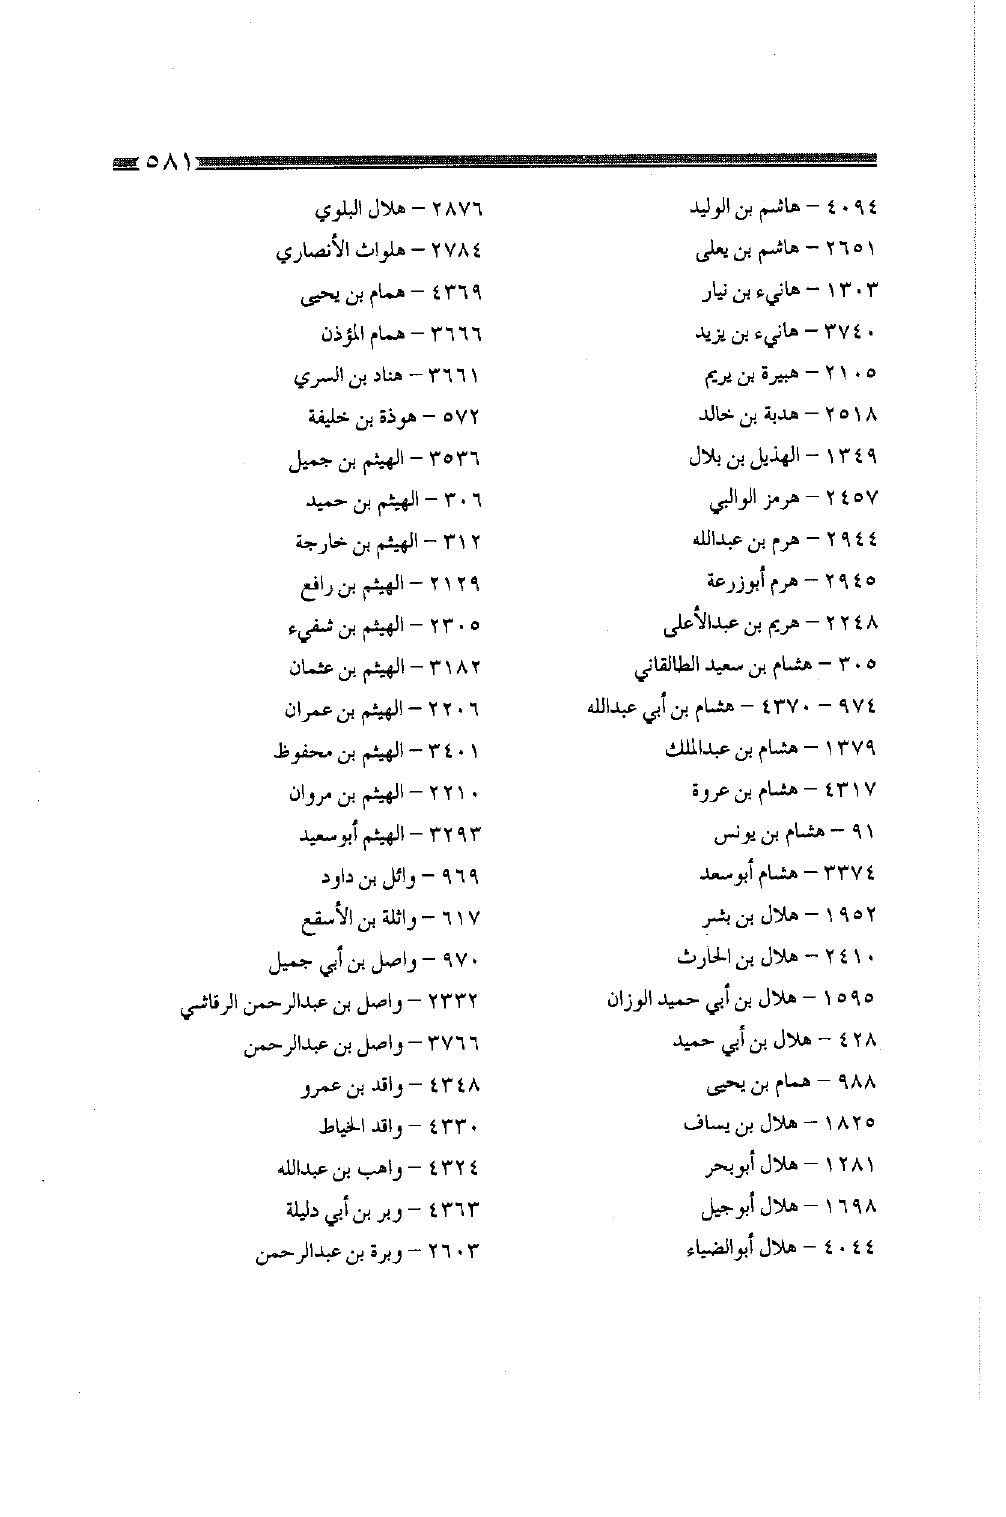 ٥٨١
٤٠٩٤ – هاشم بن الوليد
٢٦٥١ – هاشم بن يعلى
١٣٠٣ – هانيء بن نيار
٣٧٤٠ – هانيء بن يزيد
٢١٠٥ – هبيرة بن يريم
٢٥١٨ – هدبة بن خالد
١٣٤٩ – الهذيل بن بلال
٢٤٥٧ – هرمز الوالبي
٢٩٤٤ – هرم بن عبدالله
٢٩٤٥ – هرم أبوزرعة
٢٢٤٨ – هريم بن عبدالأعلى
٣٠٥ – هشام بن سعيد الطالقاني
٩٧٤ – ٤٣٧٠ – هشام بن أبي عبدالله
١٣٧٩ – هشام بن عبدالملك
٤٣١٧ – هشام بن عروة
٩١ – هشام بن يونس
٣٣٧٤ – هشام أبوسعد
١٩٥٢ – هلال بن بشر
٢٤١٠ – هلال بن الحارث
١٥٩٥ – هلال بن أبي حميد الوزان
٤٢٨ – هلال بن أبي حميد
٩٨٨ – همام بن يحيى
١٨٢٥ – هلال بن يساف
١٢٨١ – هلال أبوبحر
١٦٩٨ – هلال أبوجبل
٤٠٤٤ – هلال أبوالضياء
٢٨٧٦ – هلال البلوي
٢٧٨٤ – هلواث الأنصاري
٤٣٦٩ – همام بن يحيى
٣٦٦٦ – همام المؤذن
٣٦٦١ – هناد بن السري
٥٧٢ – هوذة بن خليفة
٣٥٣٦ – الهيثم بن جميل
٣٠٦ – الهيثم بن حميد
٣١٢ – الهيثم بن خارجة
٢١٢٩ – الهيثم بن رافع
٢٣٠٥ – الهيثم بن شفيء
٣١٨٢ – الهيثم بن عثمان
٢٢٠٦ – الهيثم بن عمران
٣٤٠١ – الهيثم بن محفوظ
٢٢١٠ – الهيثم بن مروان
٣٢٩٣ – الهيثم أبوسعيد
٩٦٩ – وائل بن داود
٦١٧ – واثلة بن الأسقع
٩٧٠ – واصل بن أبي جميل
٢٣٣٢ – واصل بن عبدالرحمن الرقاشي
٣٧٦٦ – واصل بن عبدالرحمن
٤٣٤٨ – واقد بن عمرو
٤٣٣٠ – واقد الخياط
٤٣٢٤ – واهب بن عبدالله
٤٣٦٣ – وبر بن أبي دليلة
٢٦٠٣ – وبرة بن عبدالرحمن